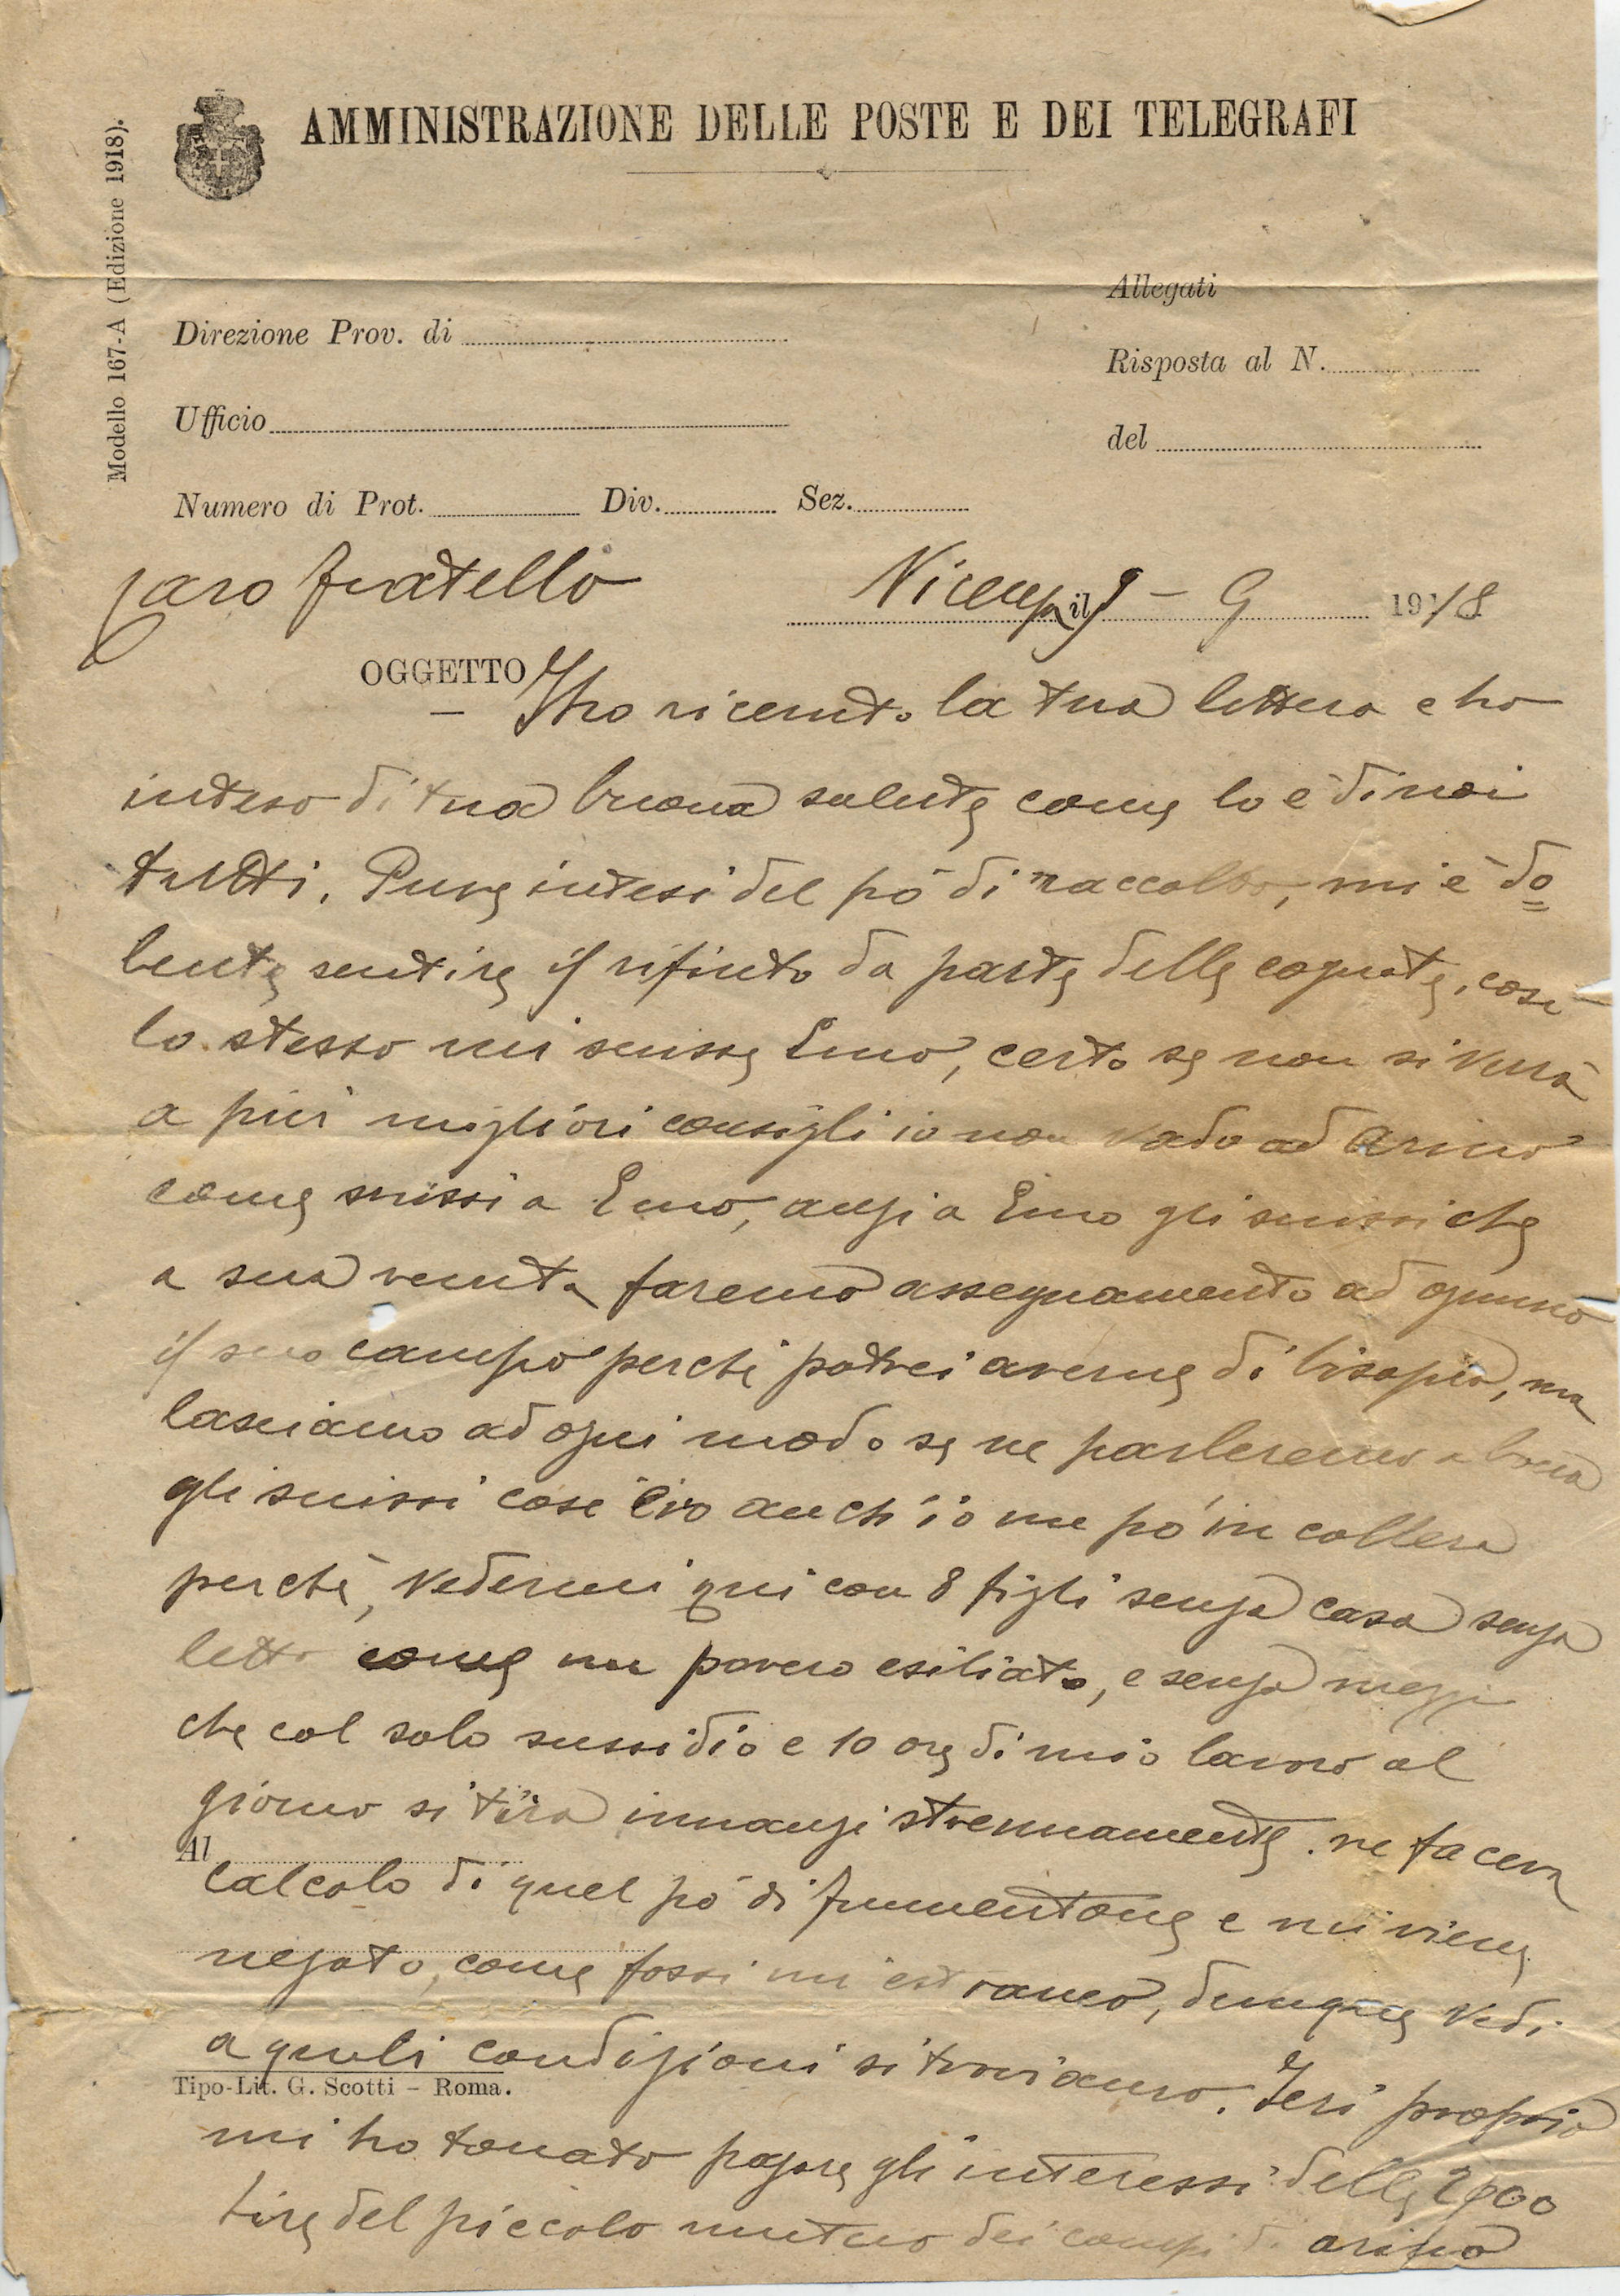 Modello 167-A (Edizione 1918).
AMMINISTRAZIONE DELLE POSTE E DEI TELEGRAFI
Allegati
Direzione Prov. di
Risposta al N.
Ufficio
del
Numero di Prot. Div. Sez.
Caro fratello
il 9 - 9 1918
OGGETTO
Ho ricevuto la tua lettera e ho
inteso di tua buona salute come lo è di noi
tutti. Pure intesi del pó di raccolto, mi è do
lente sentire il rifiuto da parte delle cognate, cosi
lo stesso mi scrisse Emo, certo se non si verrà
a piu migliori consigli io non vado ad Arino
come scrissi a Emo, anzi a Emo gli scrissi che
a sua venuta faremo assegnamento ad ognuno
il suo campo perche potrei averne di bisogno, ma
lasciamo ad ogni modo se ne parleremo a
gli scrissi cosi ero anch'io un pó in collera
perchè, vedermi qui con 8 figli senza casa senza
letto come un povero esiliato, e senza mezzi
che col solo sussidio e 10 ore di mio lavoro al
giorno si tira innanzi strenuamente. ne faceva
Al
calcolo di quel pó di frumentone e mi viene
negato, come fossi un estraneo, dunque vedi
a quali condizioni si troviamo. Ieri proprio
Tipo-Lit. G. Scotti – Roma.
mi ho tonato pagare gli interessi delle
lire del piccolo mutuo dei campi di Arino